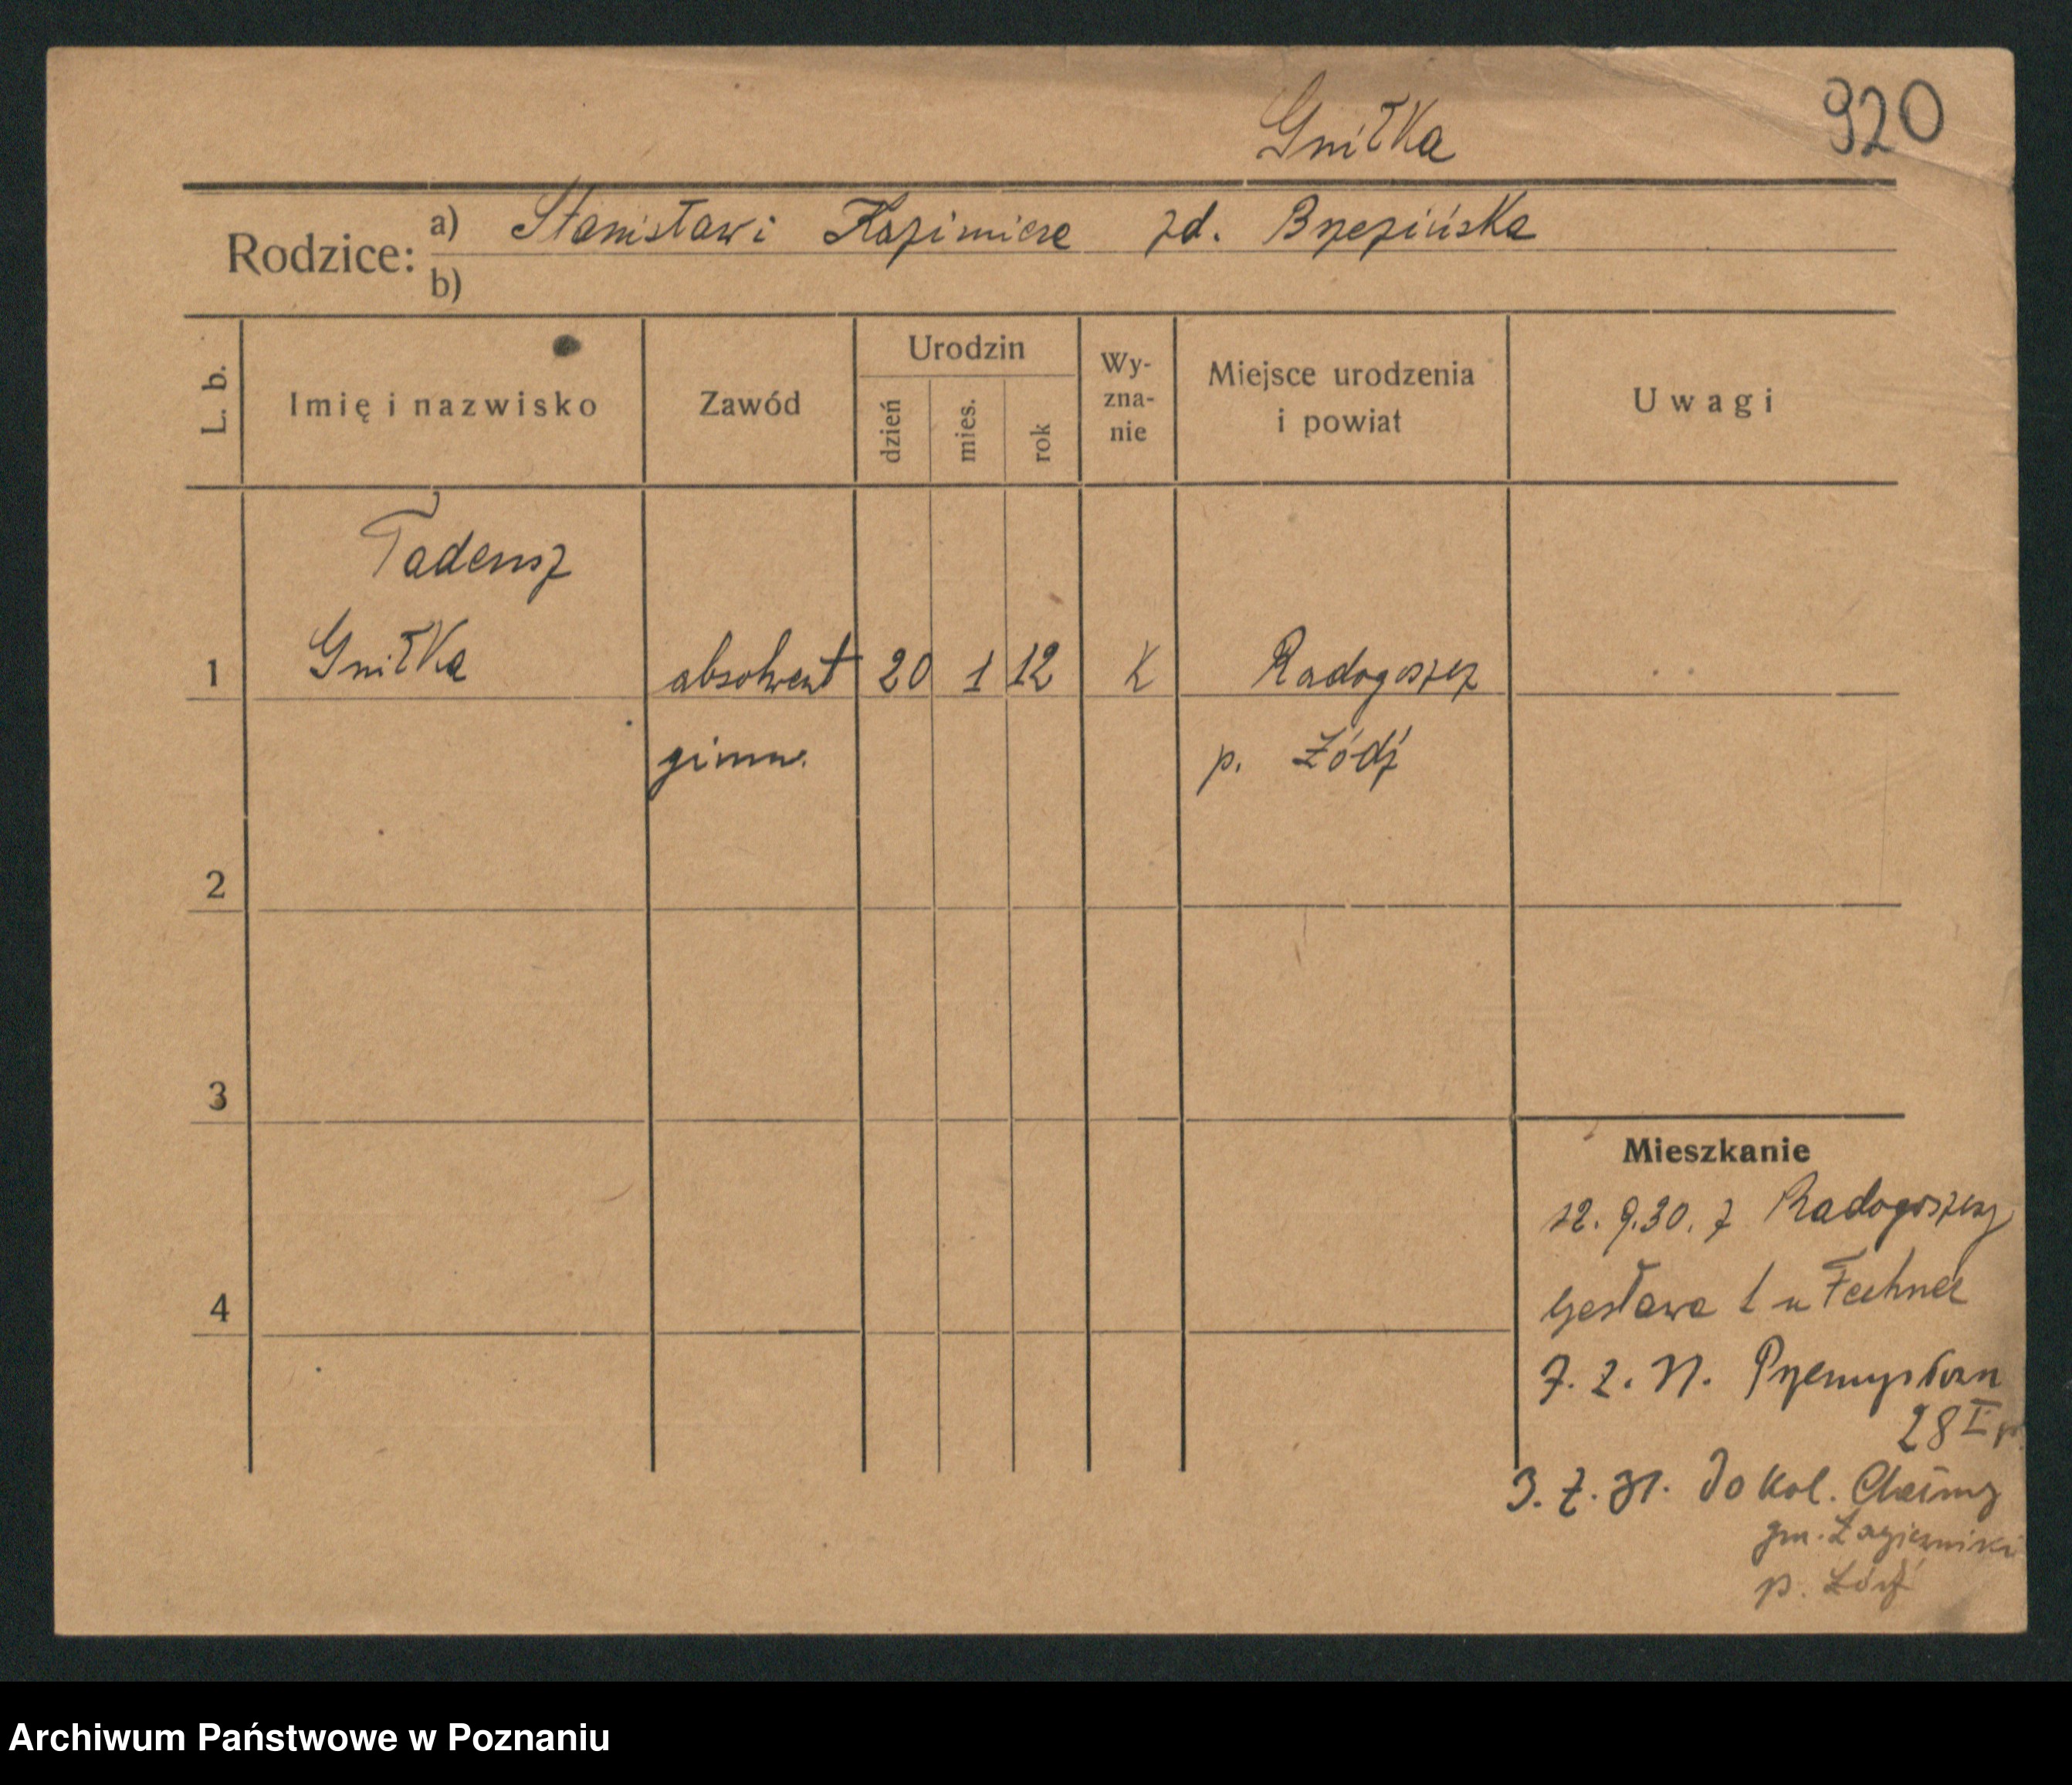 Gniłka
920
Rodzice:
a) Stanisław i Kazimiera zd. Brzezińska
b)
L. b.
Imię i nazwisko
Zawód
Urodzin
dzień
mies.
rok
Wy-
zna-
nie
Miejsce urodzenia
i powiat
Uwagi
Tadeusz
1 Gniłka absolwent 20 1 12 K Radogoszcz
gimn. p. Łódź
2
3
4
Mieszkanie
12.9.30. z Radogoszcz
Czesława 1 u Fechner
7.2.31. Przemysłowa
28 I p.
3.7.31. do kol. Chełmy
gm. Łagiewniki
p. Łódź
Archiwum Państwowe w Poznaniu